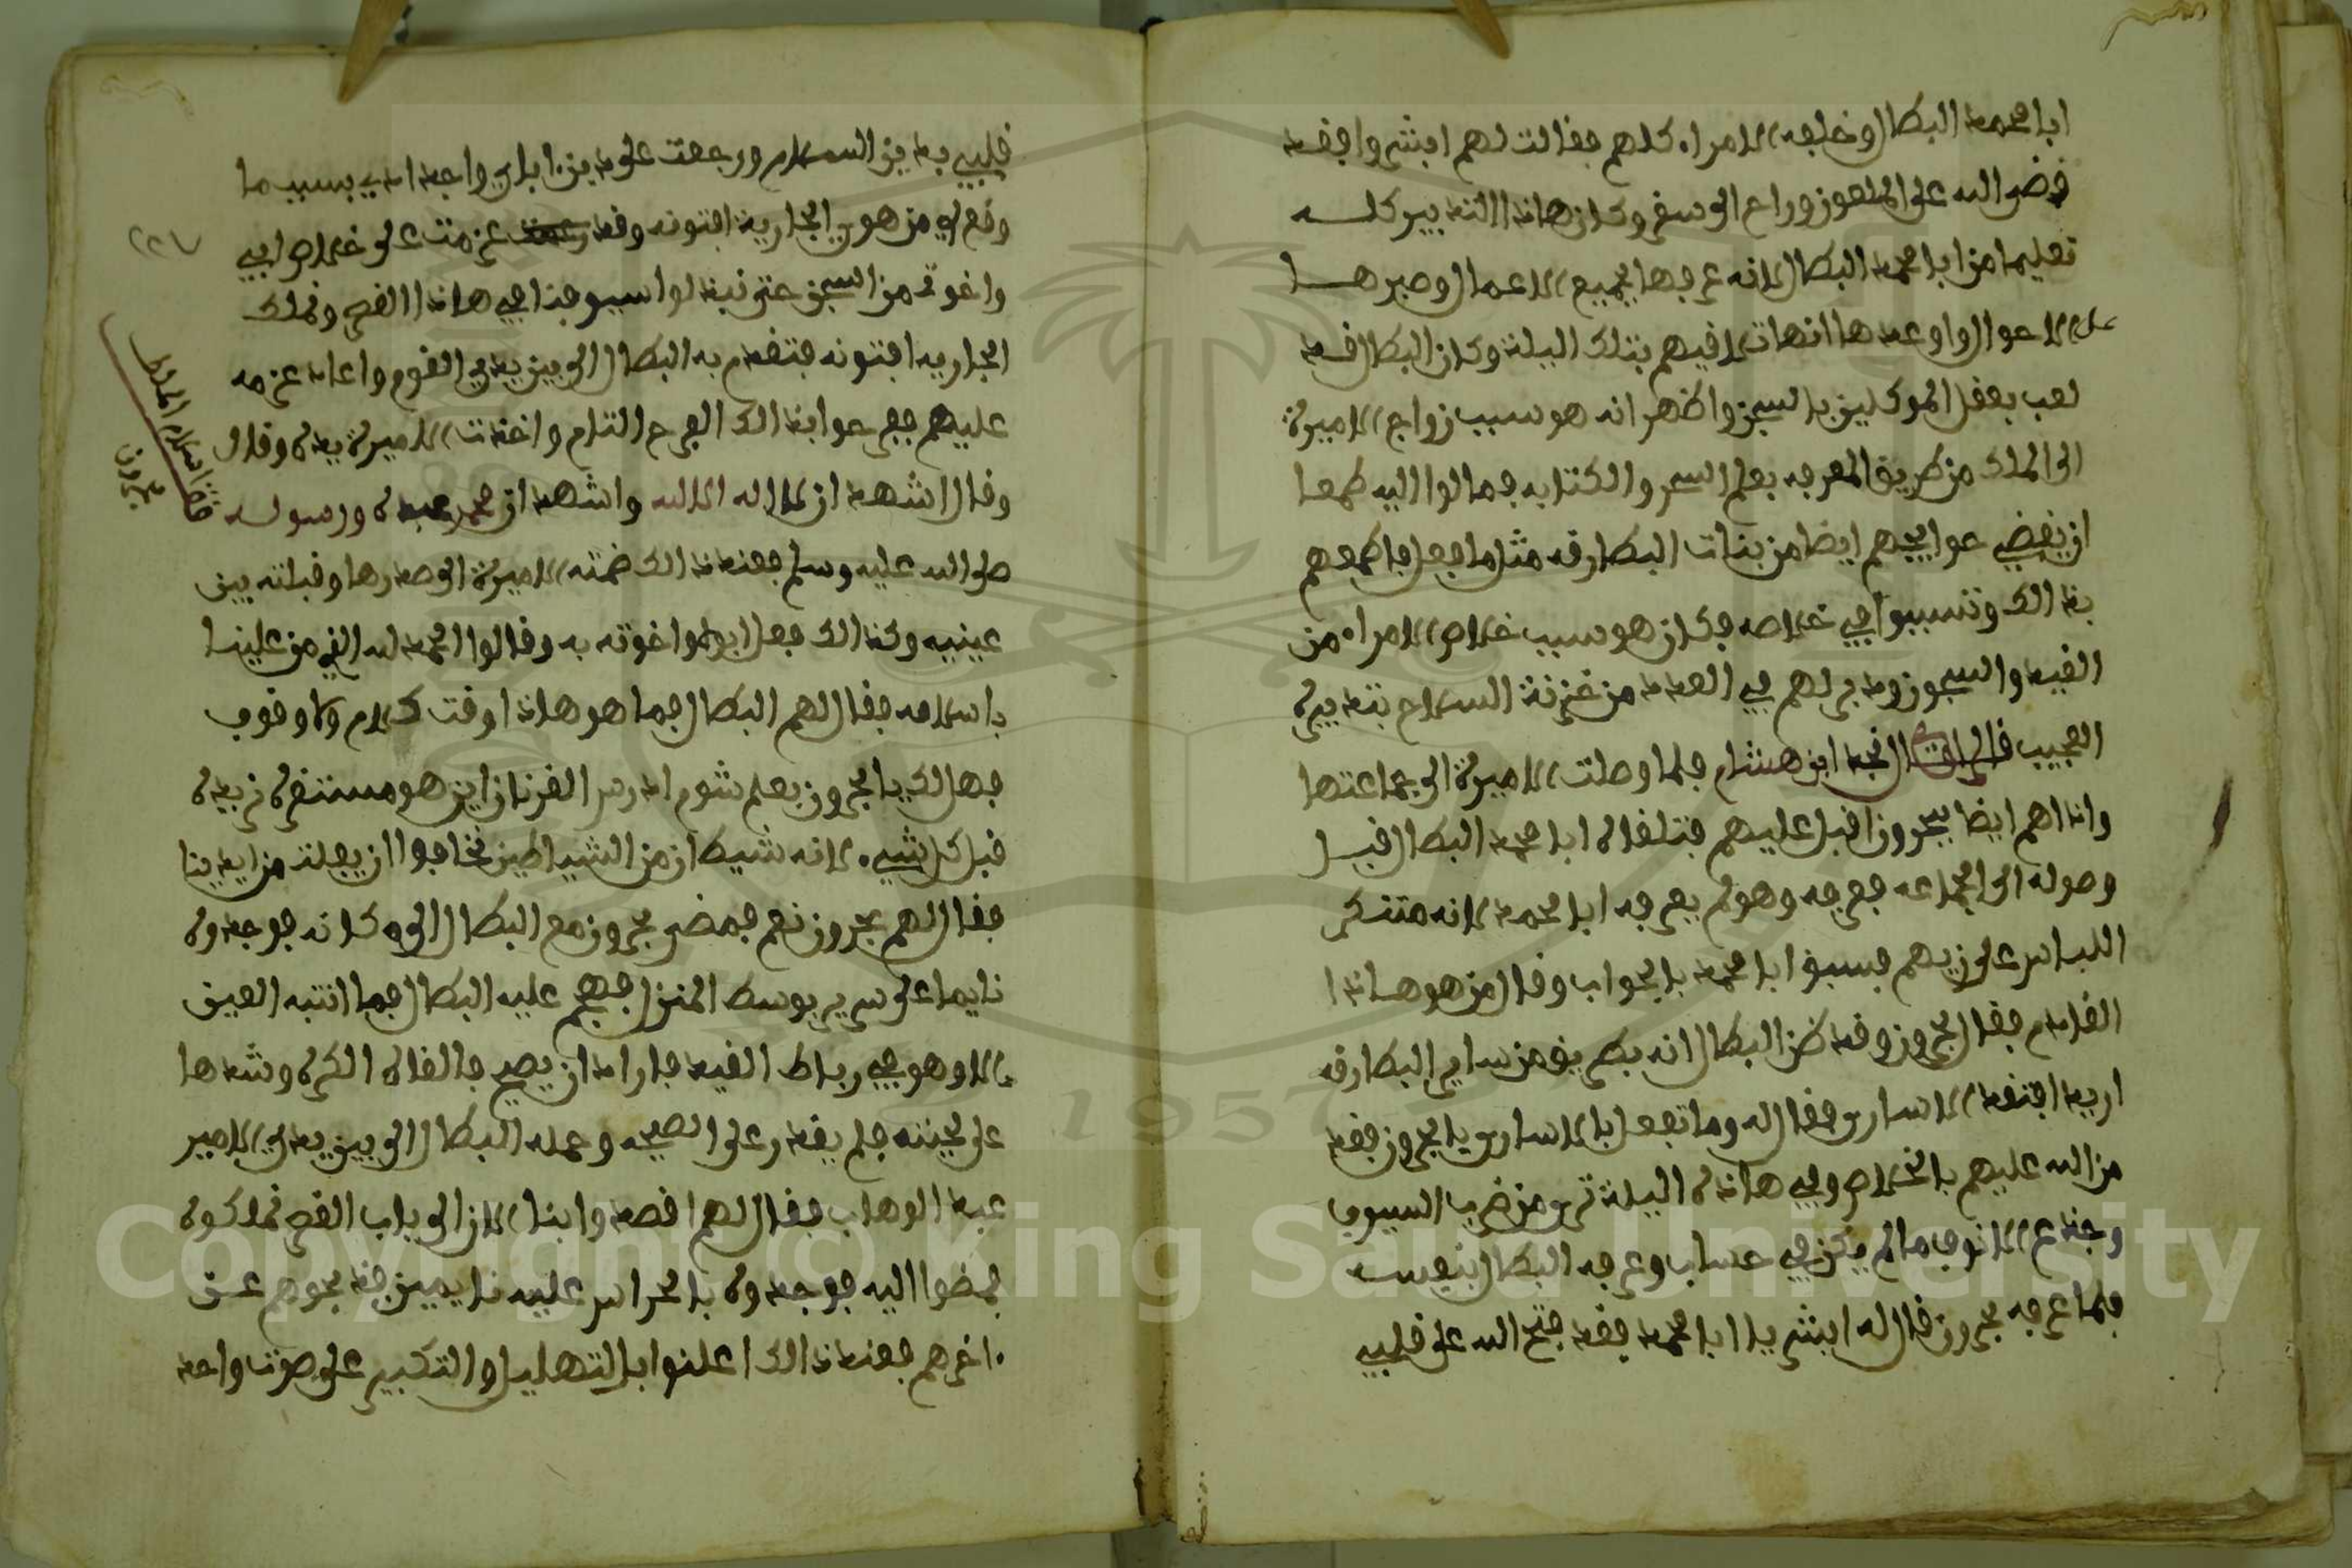 ابا محمد البطال وخليفه الامراء كلهم فقالت لهم ابشروا فقد
قضى الله على الملعون وراح الى سقر وكان هاذا التدبير كله
تعليما من ابا محمد البطال لانه عرفها بجميع الاعمال وصبرها
على الاحوال واوعدها انها تلاقيهم بتلك اليلة وكان البطال قد
لعب بعقل الموكلين بالسجن واظهر انه هو سبب زواج الاميرة
الى الملك من طريق المعرفه بعلم السحر والكتابه فمالوا اليه طمعا
ان يقضي حوايجهم ايضا من بنات البطارقه مثل ما فعل فاطمعهم
بذالك وتسببوا في خلاصه فكان هو سبب خلاص الامراء من
القيد والسجون ودبر لهم في العدد من خزنة السلاح بتدبيره
العجيب قال الراوي نجد ابن هشام فلما وصلت الاميرة الى جماعتها
واذا هم ايضا ببحرون اقبل عليهم فتلقاه ابا محمد البطال قبل
وصوله الى الجماعه فعرفه وهو لم يعرفه ابا محمد لانه متنكر
اللباس على زيهم فسبق ابا محمد بالجواب وقال من هو هاذا
القادم فقال بحرون وقد ظن البطال انه بطريق من ساير البطارقه
اريد افتقد الاسارى فقال له وما تفعل بالاسارى يا بحرون فقد
من الله عليهم بالخلاص وفي هاذه اليلة ترى من ضرب السيوف
وجدع الانوف ما لم يكن في حساب وعرفه البطال بنفسه
فلما عرفه بحرون قال له ابشر يا ابا محمد فقد فتح الله على قلبي
قلبي بدين السلام ورجعت على دين اباي واجدادي بسبب ما
وقع لي من هوى الجارية افتونه وقد عزمت على خلاص ابي
واخوتي من السجن حتى نبذلوا سيوفنا في هاذا القصر ونملك
الجاريه افتونه فتقدم به البطال الى بين يدي القوم واعاد عزمه
عليهم ففرحوا بذالك الفرح التام واخذت الاميرة يده وقال
وقال اشهد ان لا اله الا الله واشهد ان محمد عبده ورسوله
صلى الله عليه وسلم فعند ذالك ضمته الاميرة الى صدرها وقبلته بين
عينيه وكذالك فعل ابوه واخوته به وقالوا الحمد لله الذي من علينا
باسلامه فقال لهم البطال فما هو هاذا وقت كلام ولا وقوف
فهل لك يا بحرون بعلم شوم ادرس القرنان اين هو مستقره نريده
قبل كل شيء لانه شيطان من الشياطين نخافوا ان يفلت من ايدينا
فقال لهم بحرون نعم فمضى بحرون مع البطال الى مكانه فوجدوه
نايما على سرير بوسط المنزل فهجم عليه البطال فما انتبه العين
الا وهو في رباط القيد فاراد ان يصيح فالقاه الكره وشدها
على لحيته فلم يقدر على الصيحه وحمله البطال الى بين يدي الامير
عبد الوهاب فقال لهم اقصدوا بنا الان الى باب القصر نملكوه
فمضوا اليه فوجدوه بالحراس عليه نايمين فذبحوهم عن
اخرهم فعند ذالك اعلنوا بالتهليل والتكبير على صوت واحد
قصة اسلام الملك
بحرون